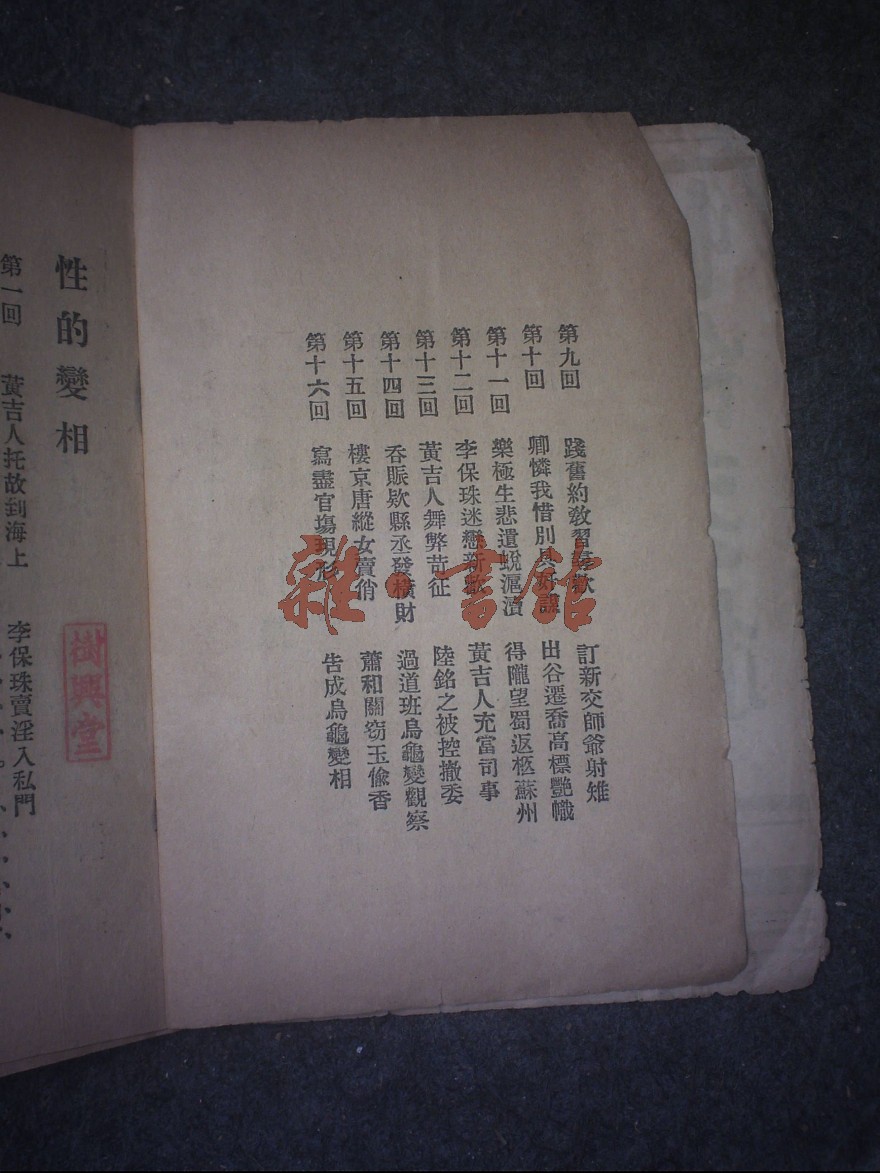 第九回 踐舊約教習尋歡 訂新交師爺射雉
第十回 卿憐我惜別具好謀 出谷遷喬高標艷幟
第十一回 樂極生悲遺蛻滬瀆 得隴望蜀返柩蘇州
第十二回 李保珠迷戀新歡 黃吉人充當司事
第十三回 黃吉人舞弊苛征 陸銘之被控撤委
第十四回 吞賑欵縣丞發橫財 過道班烏龜變觀察
第十五回 樓京唐縱女賣俏 蕭和關窃玉偸香
第十六回 寫盡官塲現形 告成烏龜變相
雜書館
性的變相
樹興堂
第一回 黃吉人托故到海上 李保珠賣淫入私門